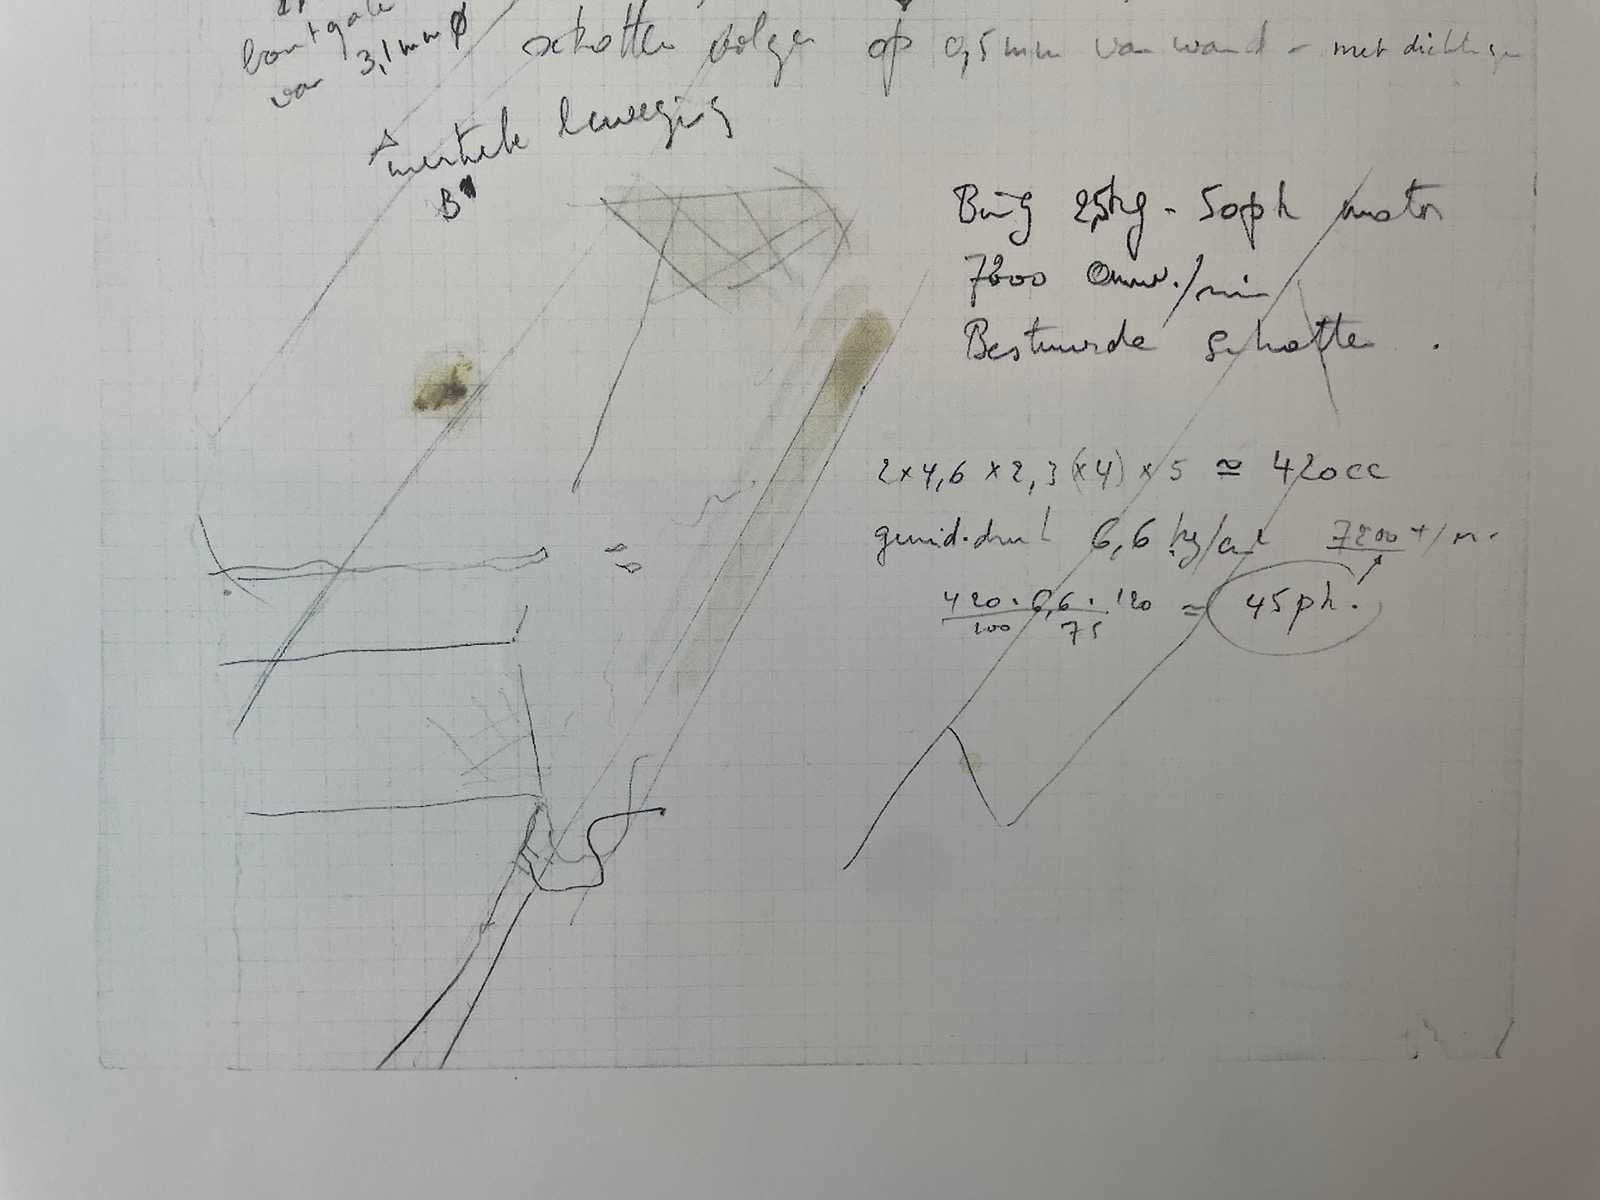 boutgate
van 3,1mm ø
schotten volgen op 0,5mm van wand - met dichtingen
beweging
B
25kg - 50ph motor
7200 Omw./min
Bestuurde schotten.
2 x 4,6 x 2,3 (x4) x 5 ≅ 420cc
gemid. druk 6,6 kg/cm² 7200 t/m.
420 . 6,6 . 120 ≃ 45ph.
100 75